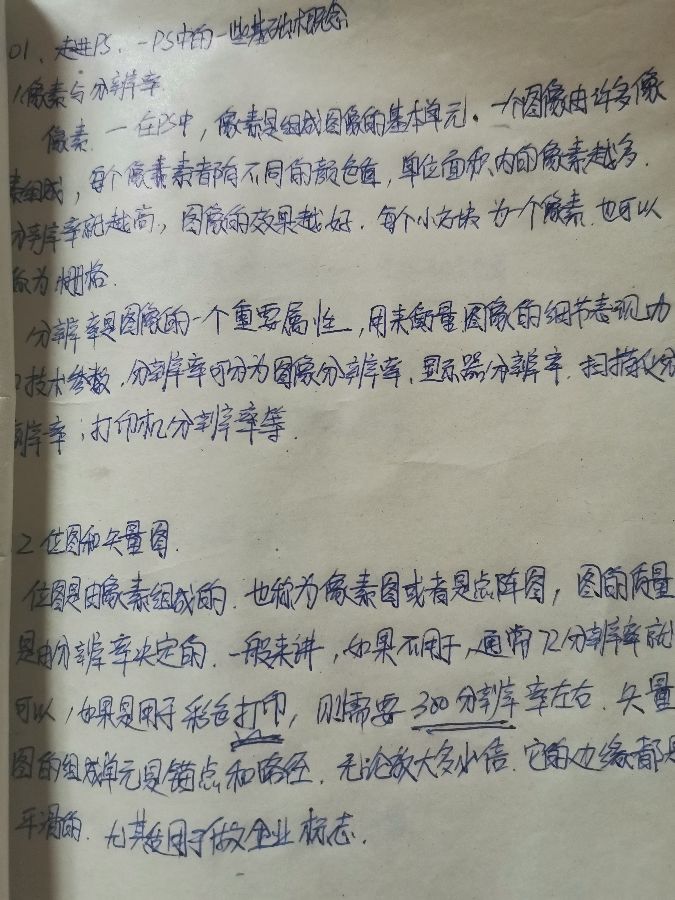 01、走进PS、一PS中的一些基础概念
1像素与分辨率
像素.一在PS中,像素是组成图像的基本单元.一个图像由许多像
素组成,每个像素素都有不同的颜色值,单位面积内的像素越多.
分辨率就越高,图像的效果越好.每个小方块为一个像素.也可以
称为栅格.
分辨率是图像的一个重要属性,用来衡量图像的细节表现力
技术参数.分辨率可分为图像分辨率、显示器分辨率.扫描仪分
辨率;打印机分辨率等.
2 位图和矢量图.
位图是由像素组成的.也称为像素图或者是点阵图,图的质量
是由分辨率决定的.一般来讲,如果不用于,通常72分辨率就
可以,如果是用于彩色打印,则需要300分辨率左右.矢量
图的组成单元是锚点和路径.无论放大多少倍.它的边缘都是
平滑的.尤其适用于做企业标志.